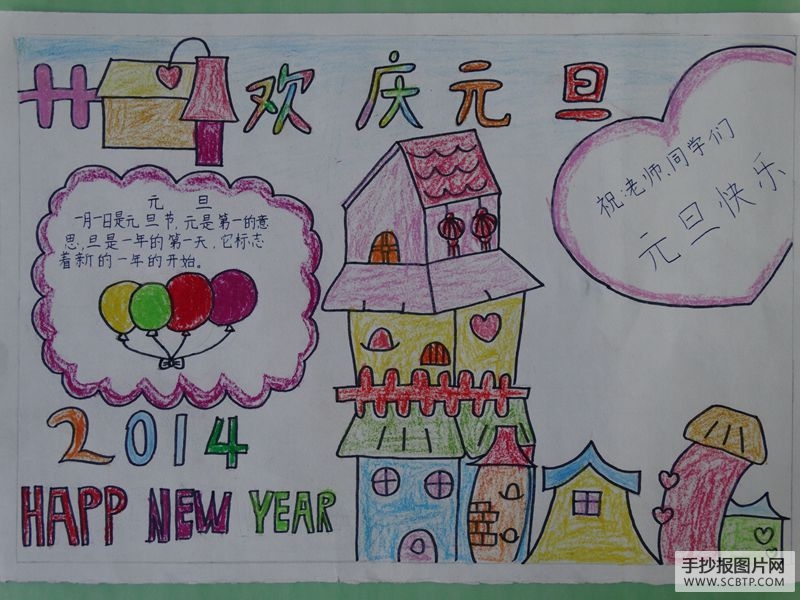 欢庆元旦
元旦
一月一日是元旦节,元是第一的意
思,旦是一年的第一天,它标志
着新的一年的开始。
祝:老师、同学们
元旦快乐
2014
HAPP NEW YEAR
手抄报图片网
WWW.SCBTP.COM